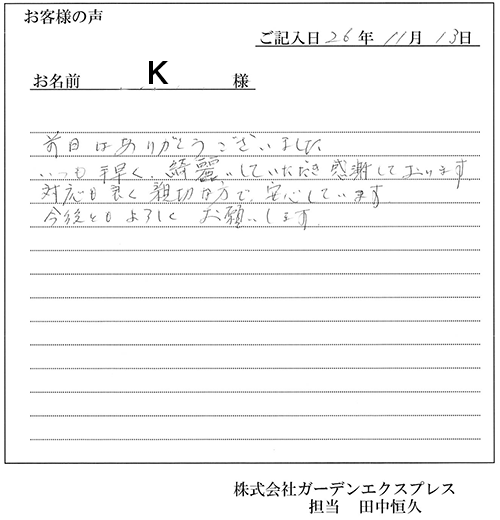 お客様の声
ご記入日 26年 11月 13日
お名前 K 様
前日はありがとうございました
いつも手早く、綺麗にしていただき感謝しております
対応も良く親切な方で、安心しています
今後ともよろしくお願いします。
株式会社ガーデンエクスプレス
担当 田中恒久